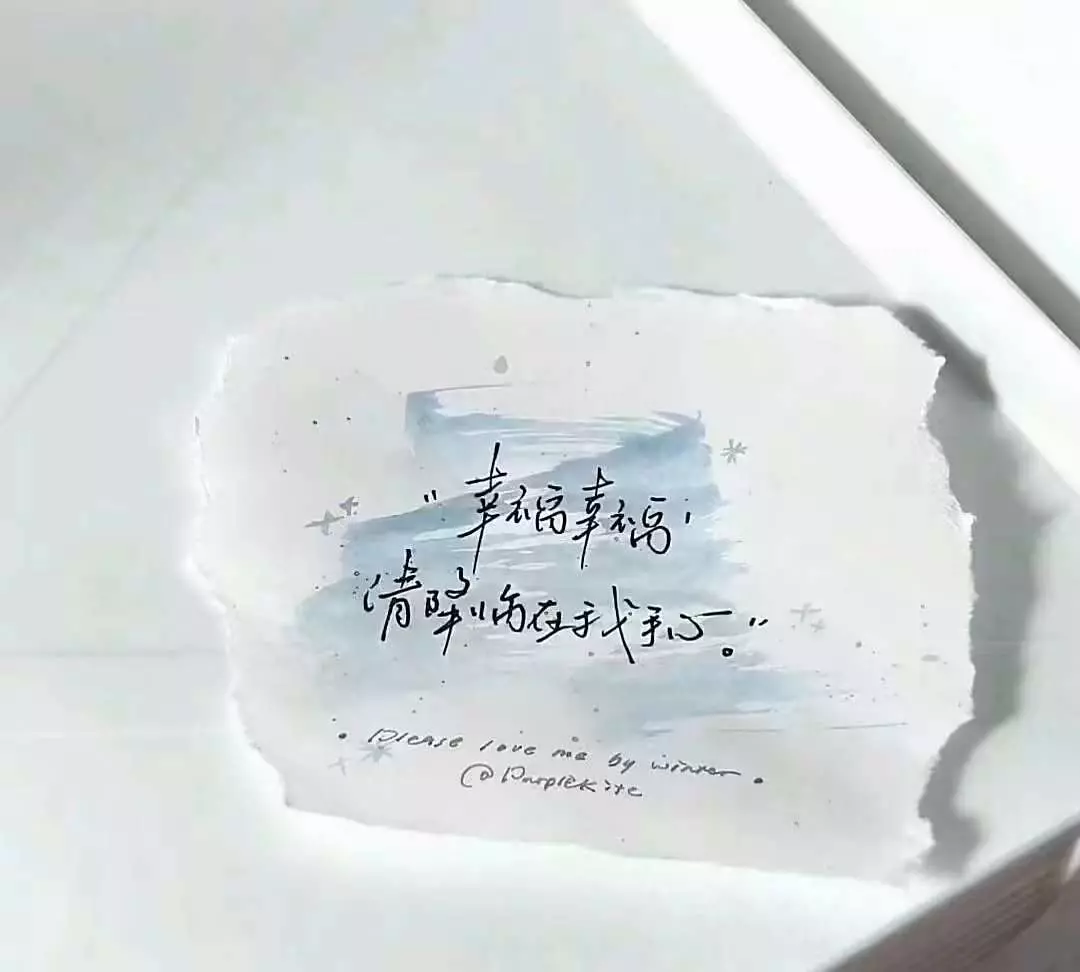 “幸福幸福，
请降临在我手心。”
• Please love me by winter •
@Purplekite